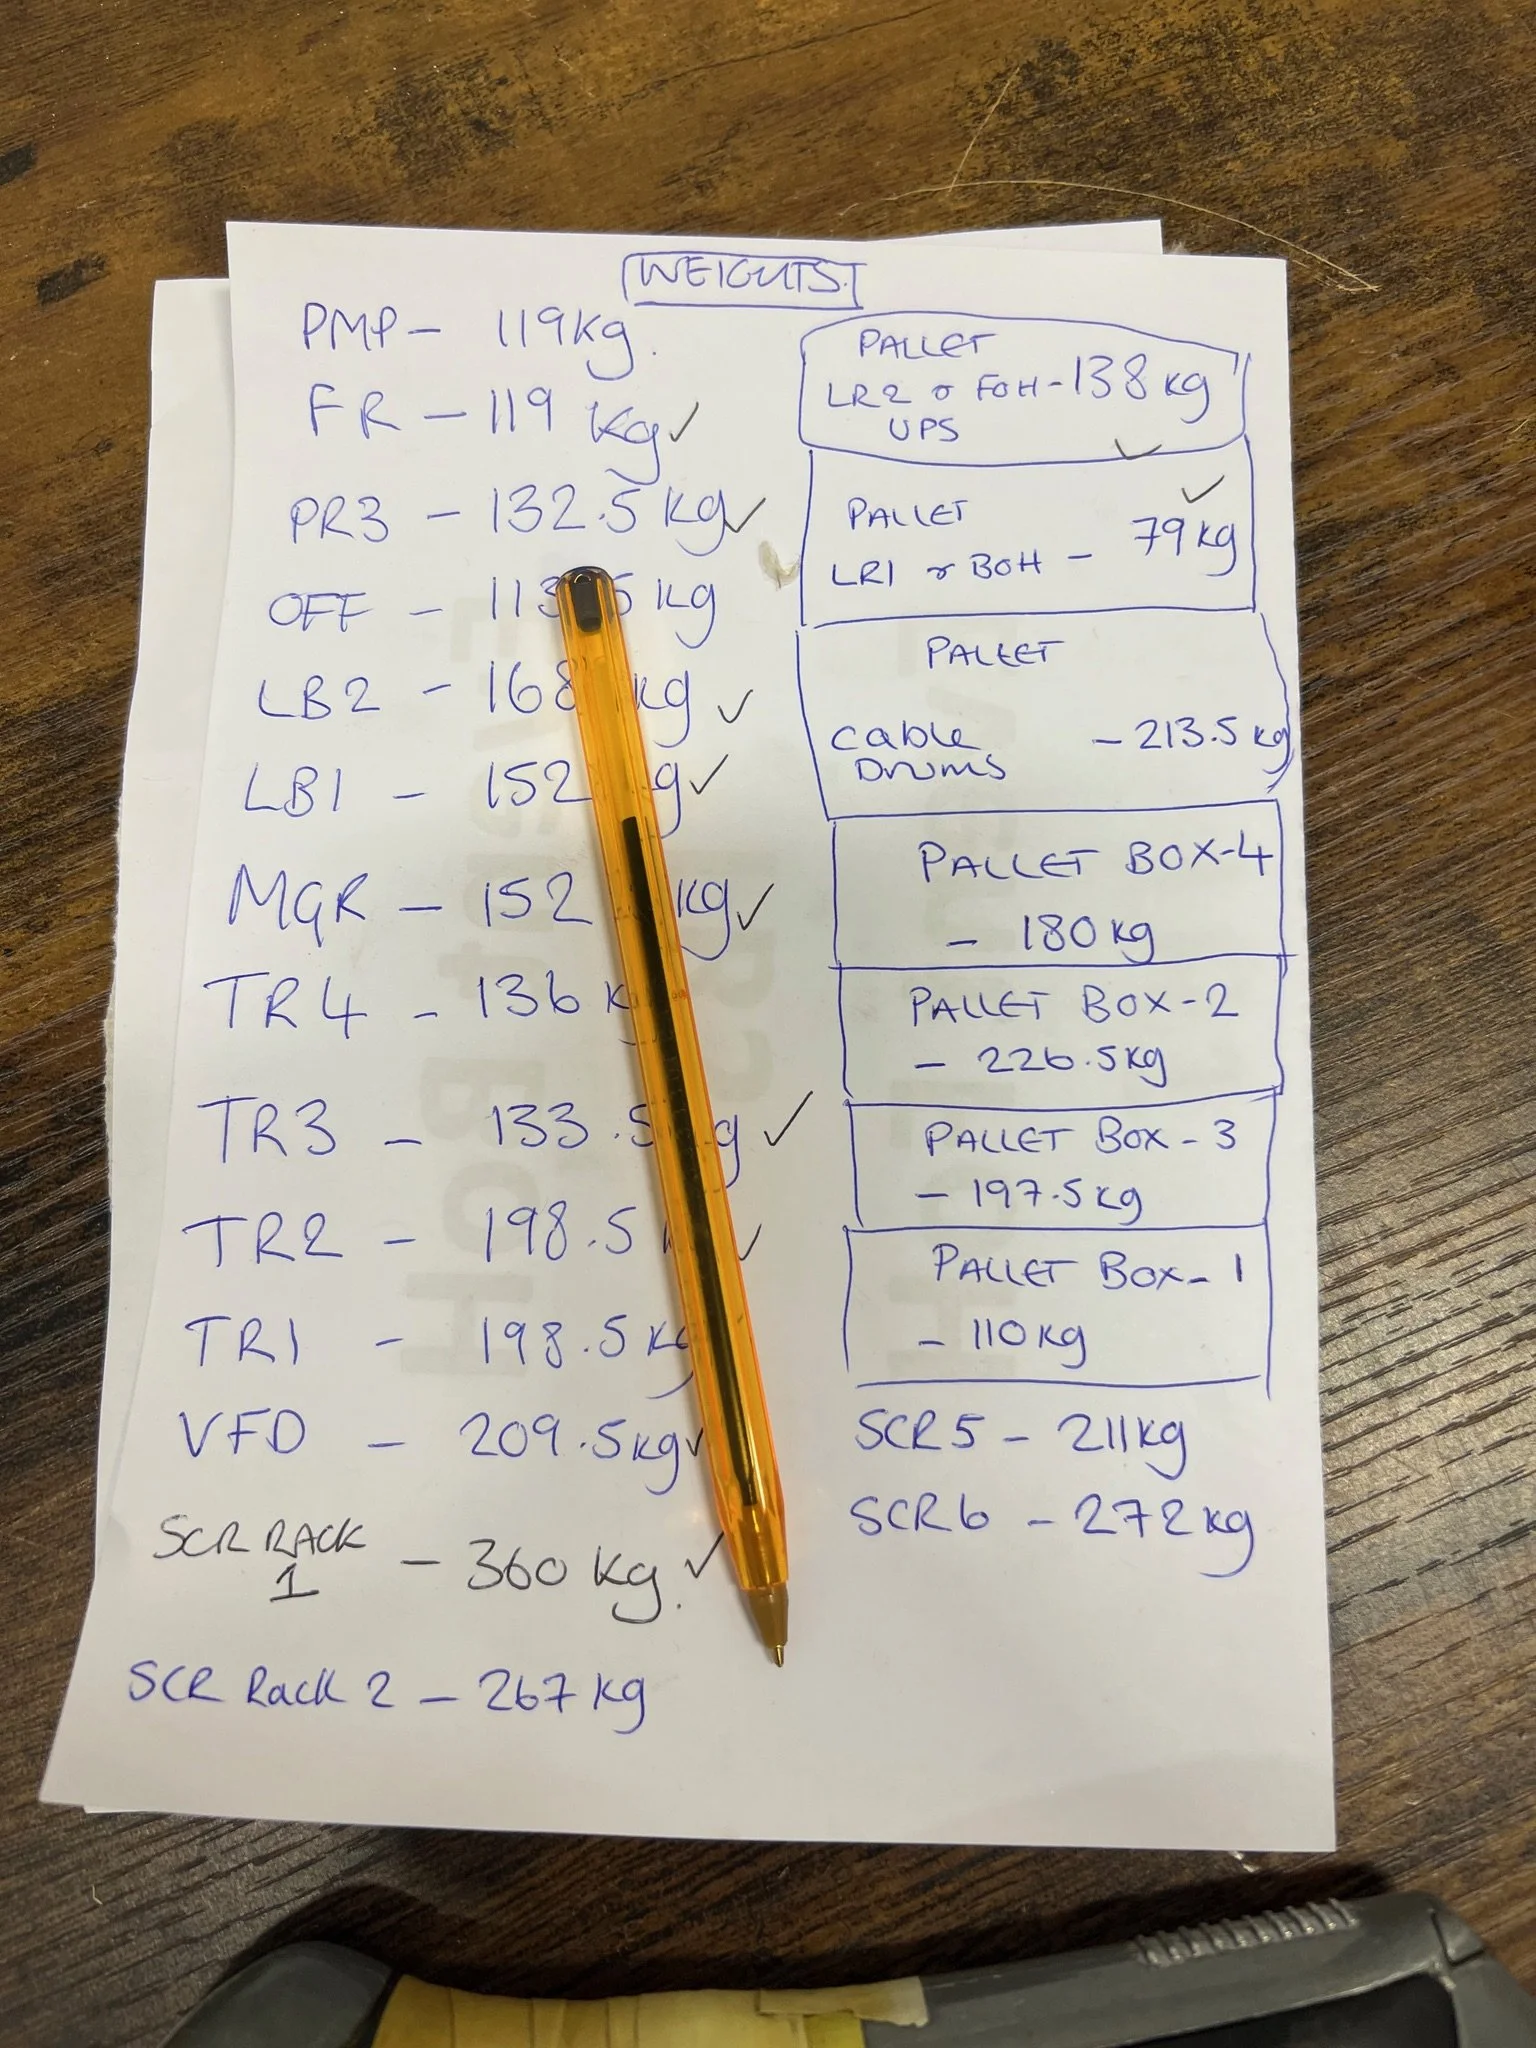 WEIGHTS.
PMP - 119kg.
FR - 119 kg ✓
PR3 - 132.5 kg ✓
OFF - 113.5 kg
LB2 - 168 kg ✓
LB1 - 152 kg ✓
MGR - 152 kg ✓
TR4 - 136 k
TR3 - 133.5 kg ✓
TR2 - 198.5 k ✓
TR1 - 198.5 kg
VFD - 209.5kg ✓
SCR RACK
1 - 360 kg. ✓
SCR Rack 2 - 267 kg
PALLET
LR2 & FOH - 138 kg
UPS ✓
PALLET ✓
LR1 & BOH - 79 kg
PALLET
Cable - 213.5 kg
Drums
PALLET BOX-4
- 180 kg
PALLET BOX-2
- 226.5kg
PALLET BOX-3
- 197.5 kg
PALLET BOX-1
- 110 kg
SCR5 - 211kg
SCR6 - 272 kg